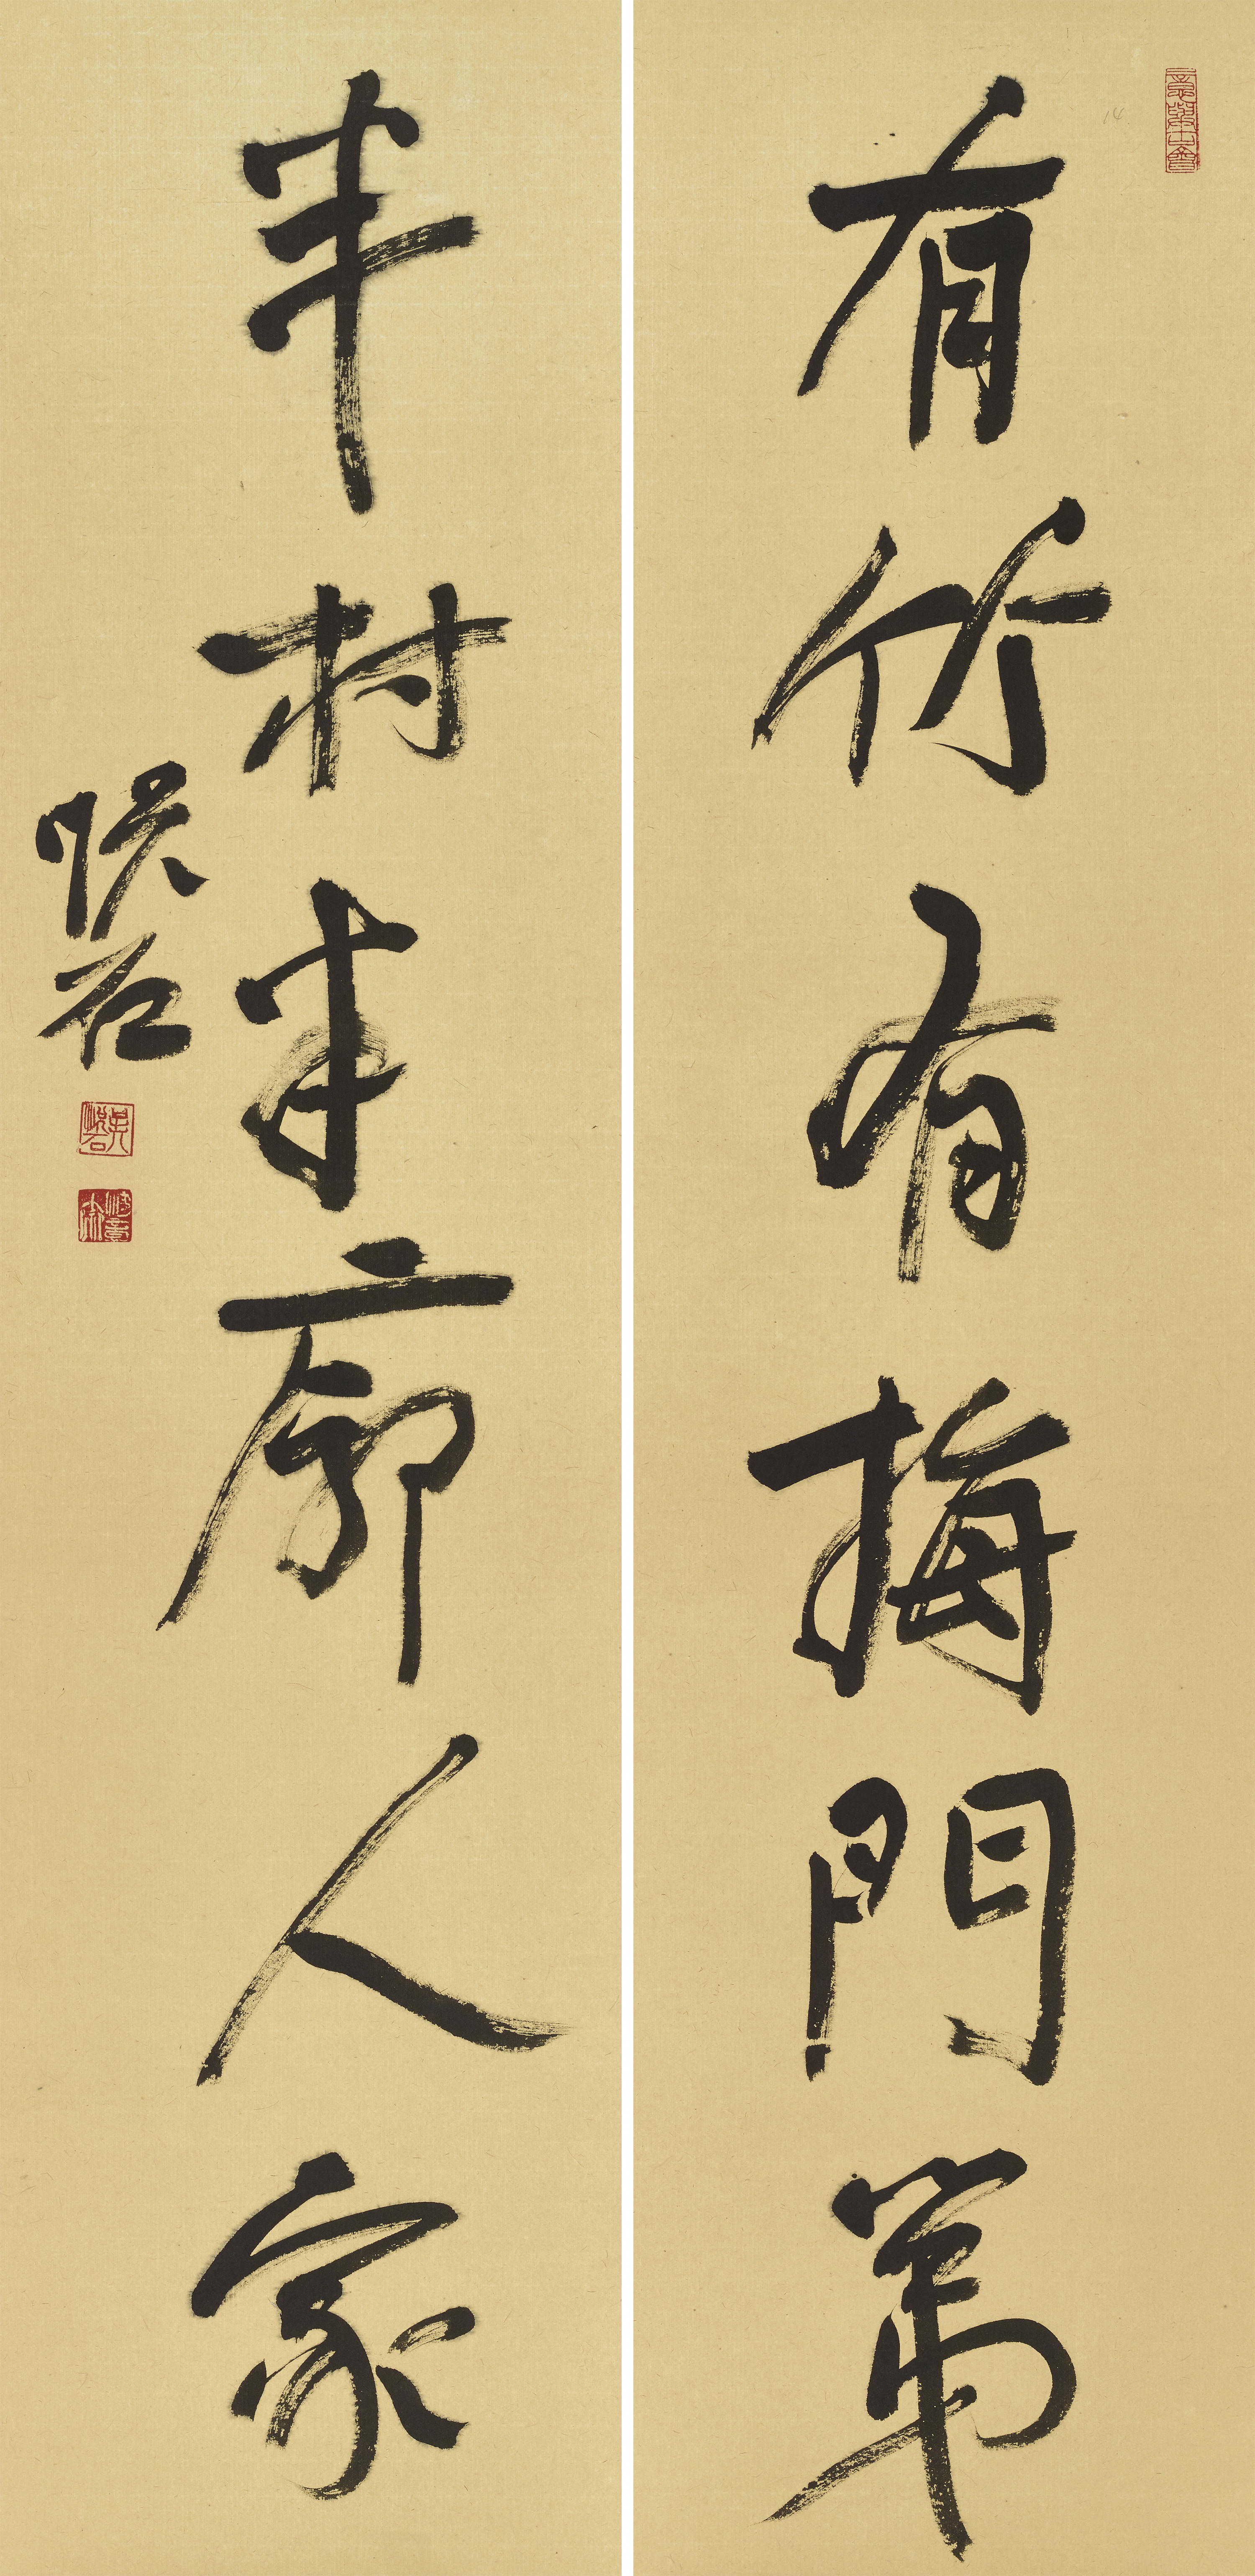 有竹有梅門第
半村半廓人家
悅石